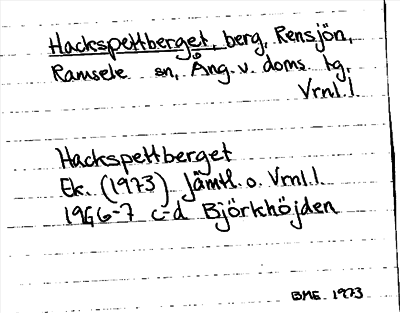 Hackspettberget, berg, Rensjön,
Ramsele sn, Ång. v. doms. tg.
Vrnl. l.
Hackspettberget
Ek. (1973) Jämtl. o. Vrnl. l.
19G 6-7 c-d Björkhöjden
BME 1973